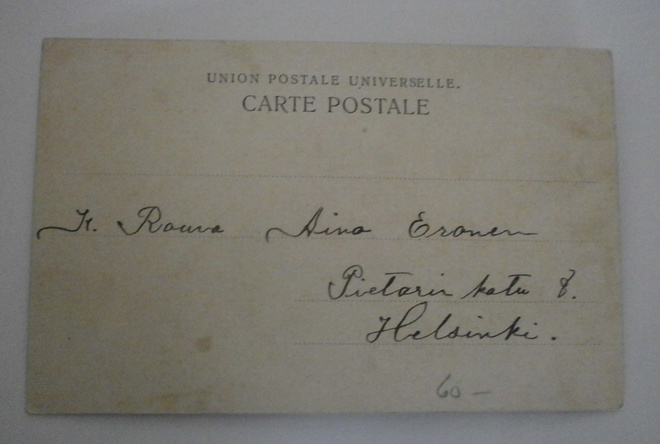 UNION POSTALE UNIVERSELLE.
CARTE POSTALE
H. Rouva Aino Eronen
Pietarin katu 8.
Helsinki.
60 —